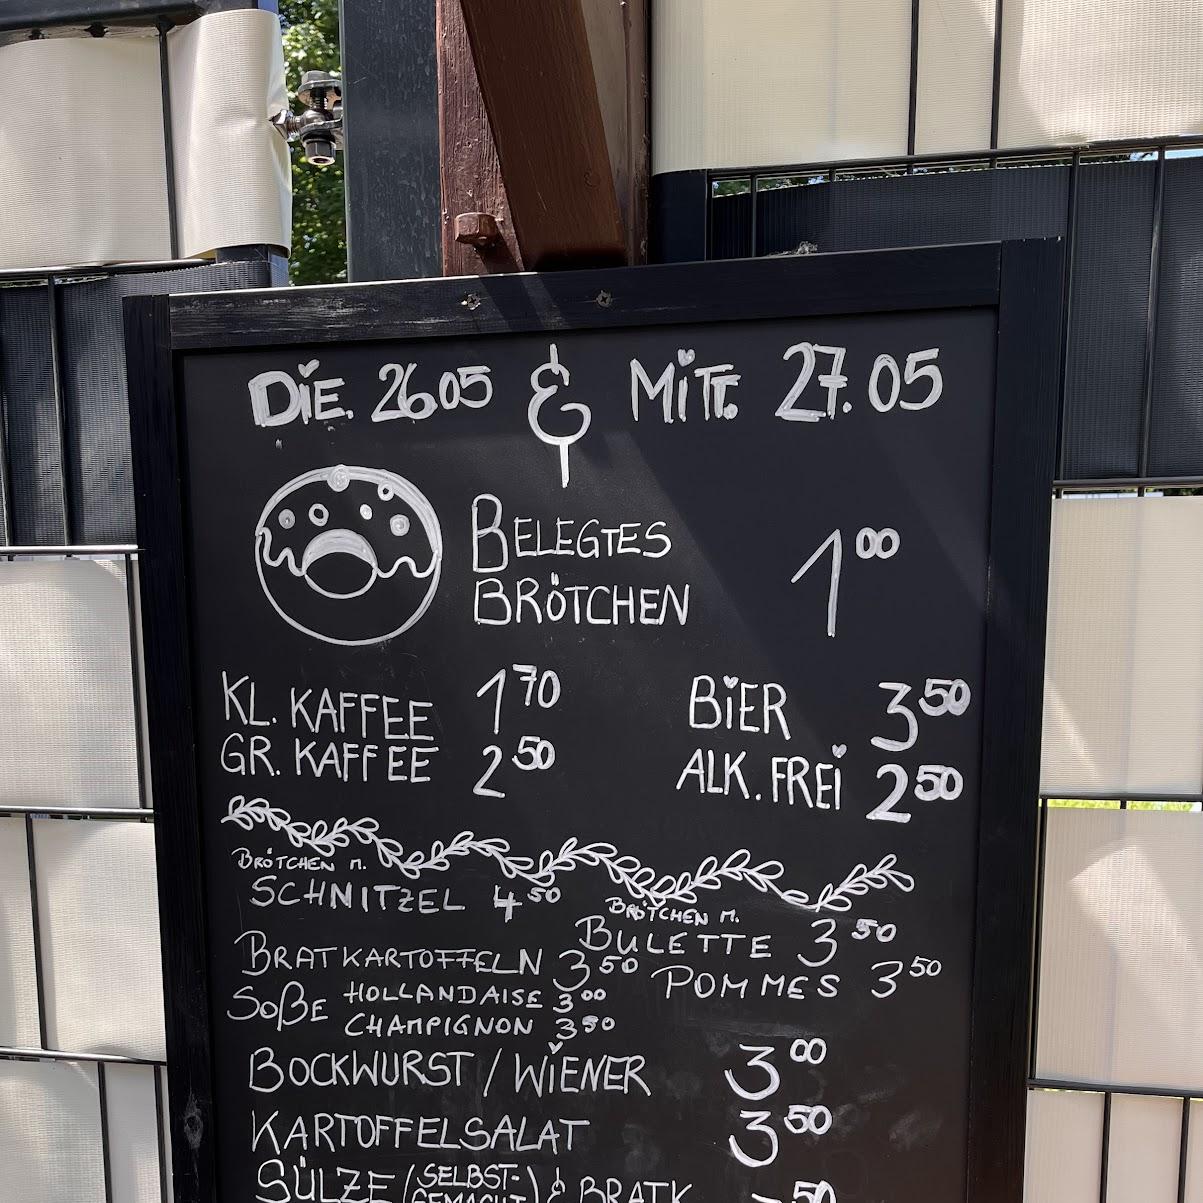 DiE. 26.05 & MiTT. 27.05
BELEGTES
BRÖTCHEN 1 00
KL. KAFFEE 1 70
GR. KAFFEE 2 50
BiER 3 50
ALK. FREi 2 50
BRÖTCHEN M.
SCHNITZEL 4 50
BRÖTCHEN M.
BULETTE 3 50
BRATKARTOFFELN 3 50
POMMES 3 50
SOßE HOLLANDAISE 3 00
CHAMPIGNON 3 50
BOCKWURST / WiENER 3 00
KARTOFFELSALAT 3 50
SÜLZE (SELBST-
GEMACHT) & BRATK 50